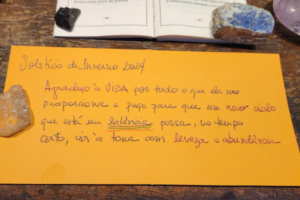 Solstício de Inverno 2024
Agradeço à VIDA por tudo o que ela me
proporciona e peço para que um novo ciclo
que está em latência possa, no tempo
certo, vir à tona com leveza e abundância